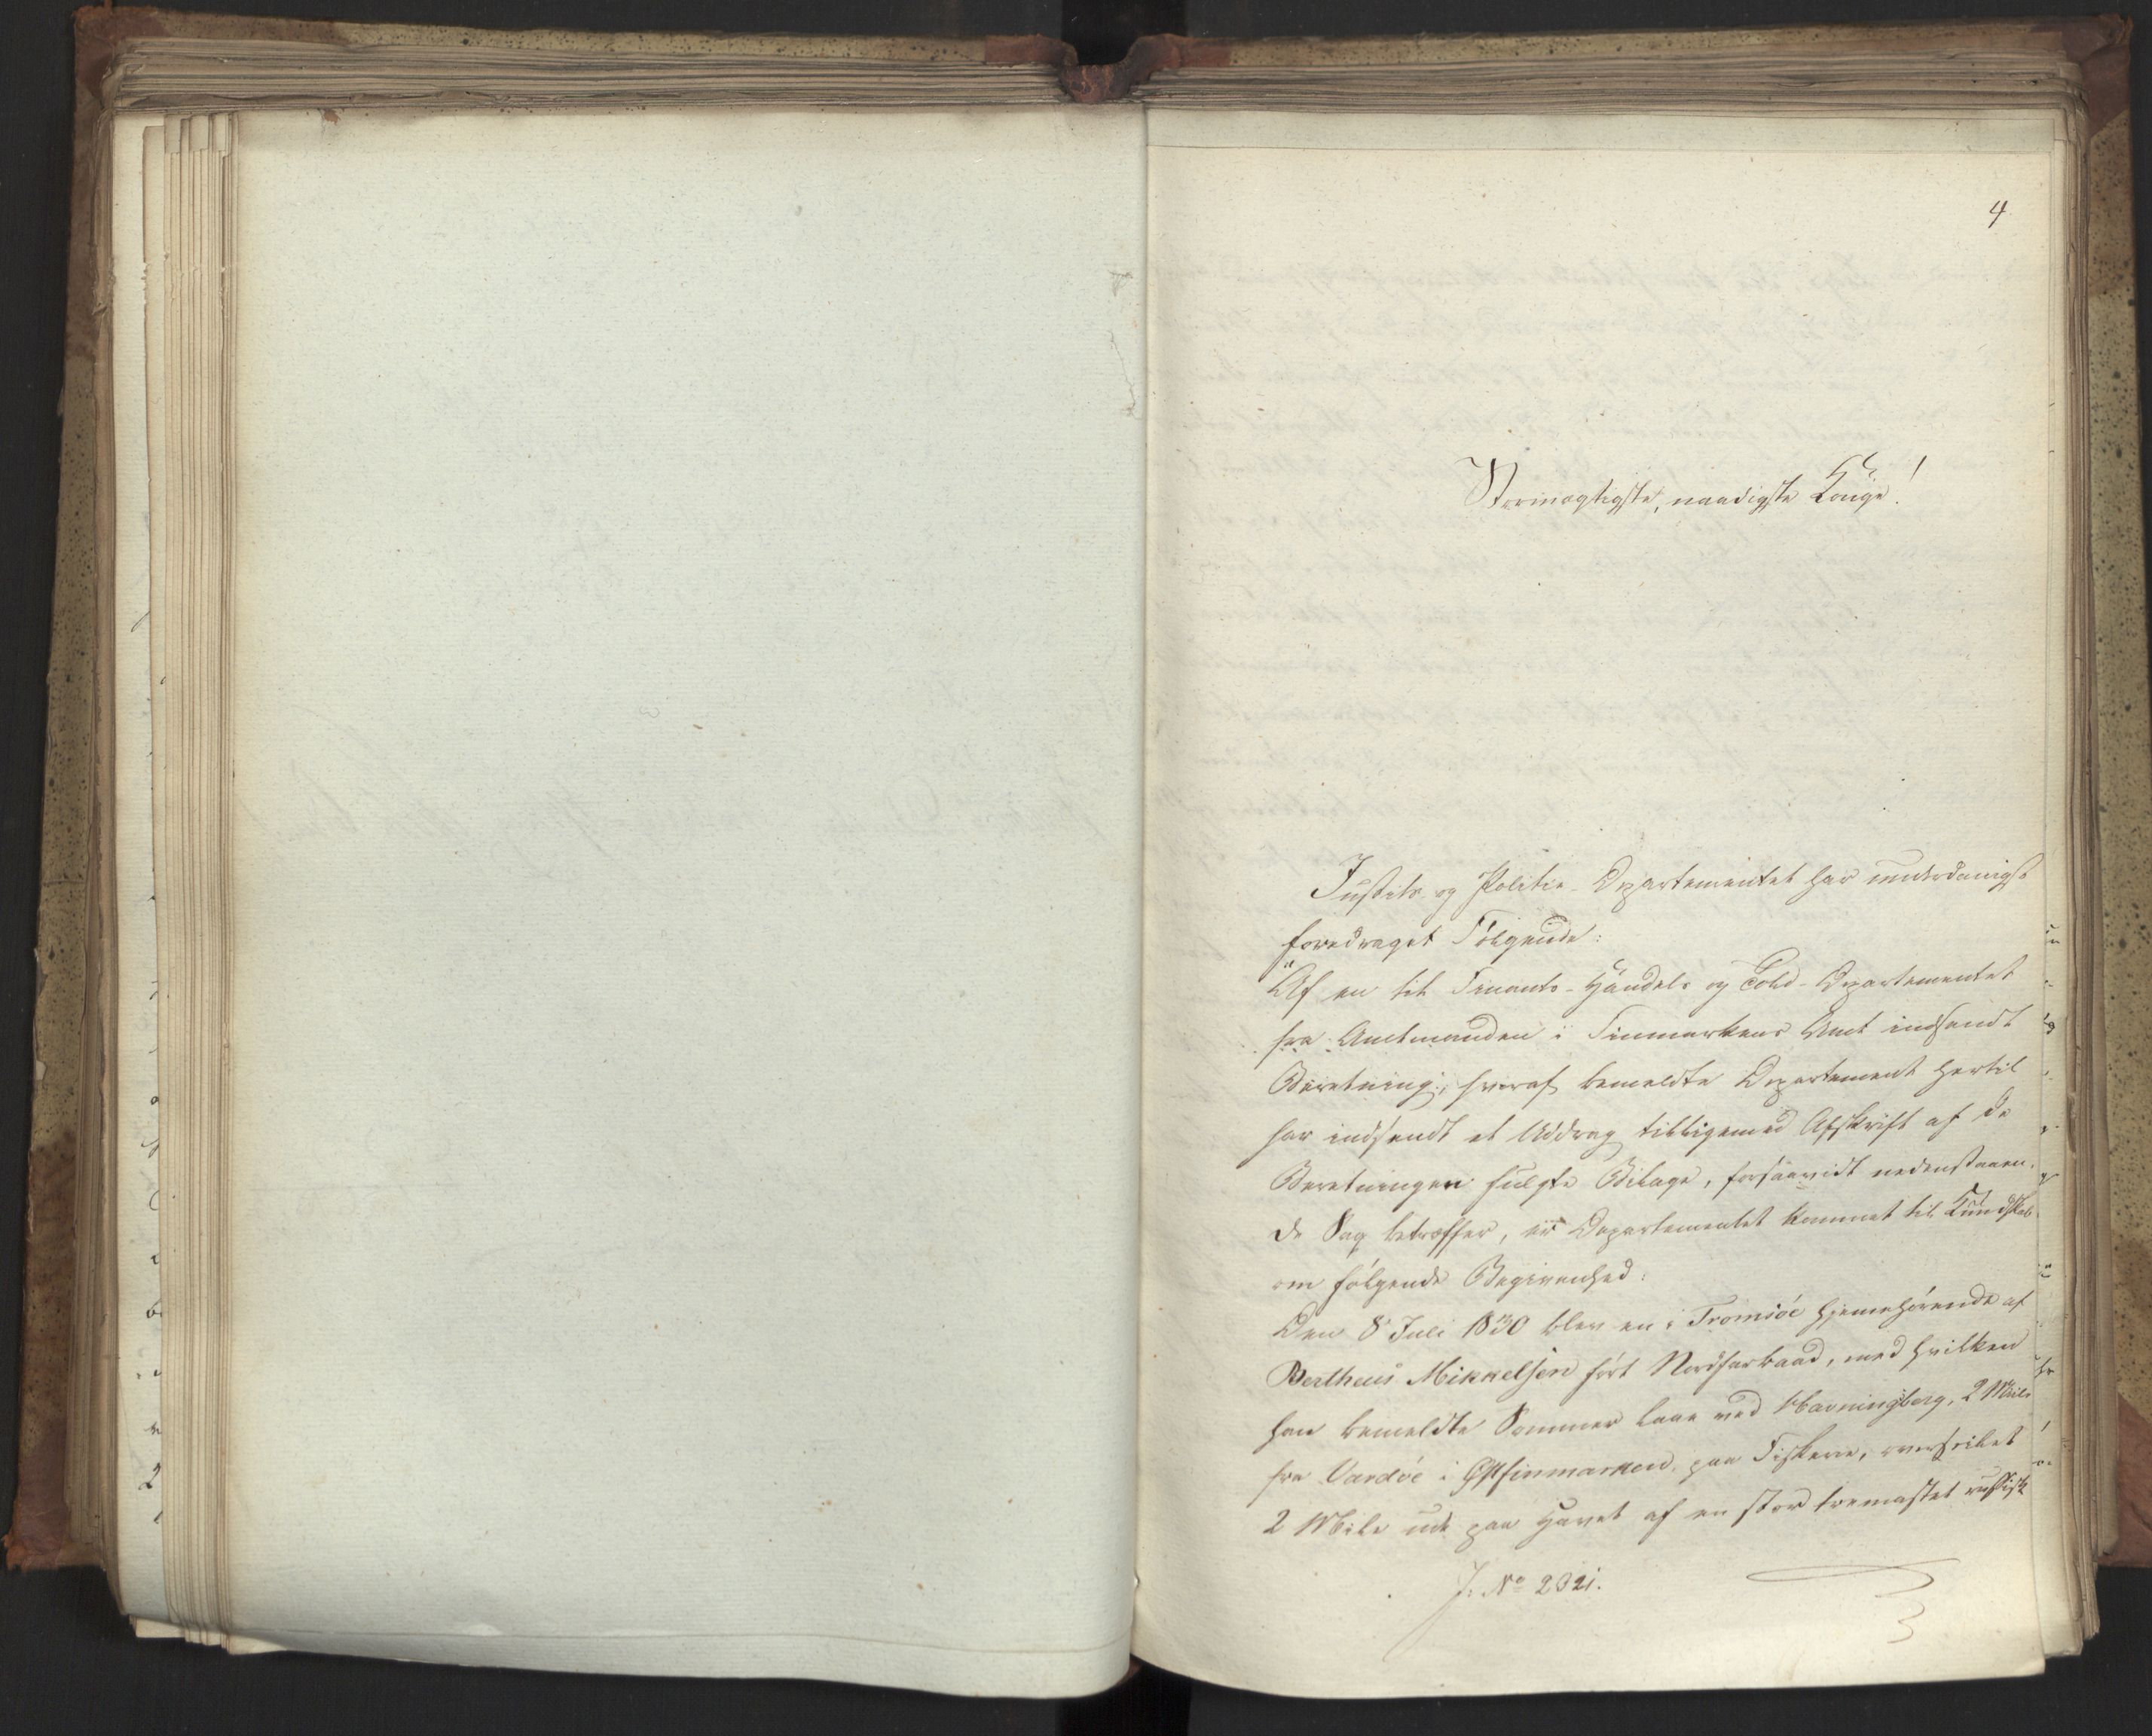 4
Stormægtigste, naadigste Konge!
Justits og Politie-Departementet har underdanigst
foredraget Følgende:
"Af en til Finants- Handels og Told-Departementet
fra Amtmanden i Finmarkens Amt indsendt
Beretning, hvoraf bemeldte Departement hertil
har indsendt et Uddrag tilligemed Afskrift af de
Beretningen fulgte Bilage, forsaavidt nedenstaaen-
de Sag betræffer, er Departementet kommet til Kundskab
om følgende Begivenhed:
Den 8 Juli 1830 blev en i Tromsöe hjemmehørende af
Bertheus Mikkelsen ført Nordfarbaad, med hvilken
han bemeldte Sommer laae ved Havningberg, 2 Mile
fra Vardöe i Østfinmarken paa Fiskerie, overseilet
2 Mile ude paa Havet af en stor tremastet russisk
J. No 2321.